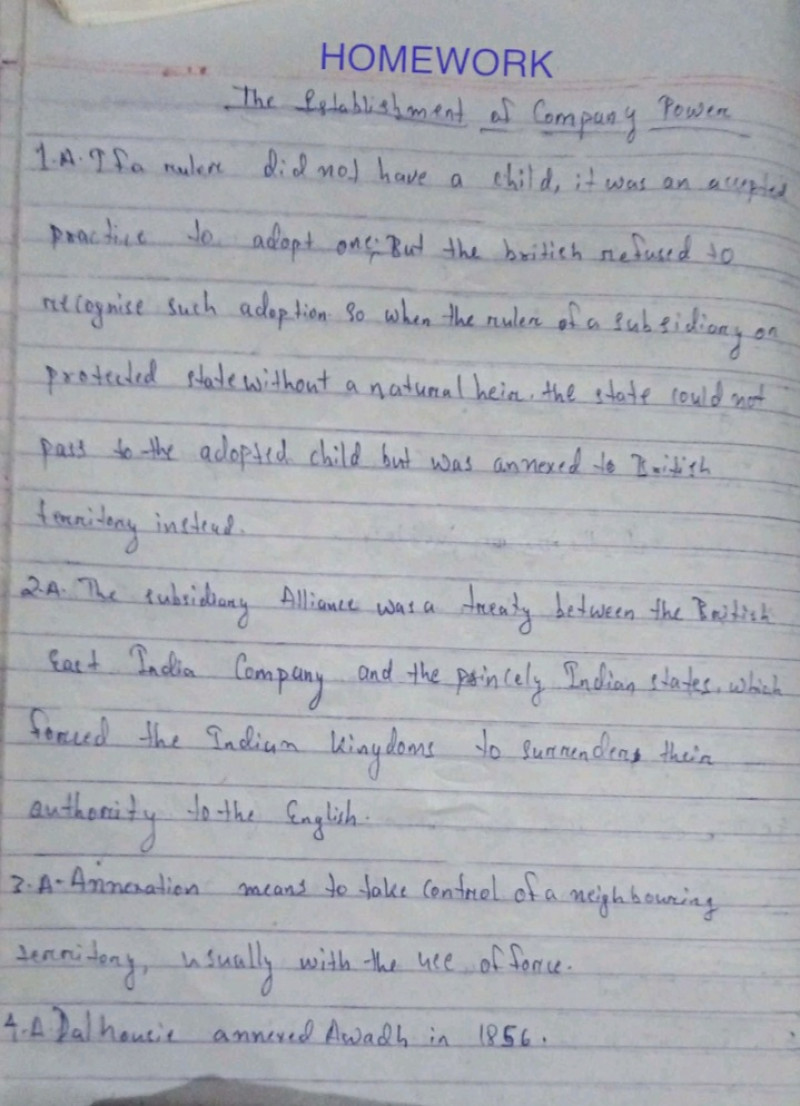 HOMEWORK
The Establishment of Company Power
1.A. If a ruler did not have a child, it was an accepted
practice to adopt one; But the british refused to
recognise such adoption so when the ruler of a subsidiary or
protected state without a natural heir. the state could not
pass to the adopted child but was annexed to British
territory instead.
2.A. The subsidiary Alliance was a treaty between the British
East India Company and the princely Indian states, which
forced the Indian kingdoms to surrender their
authority to the English.
3.A- Annexation means to take control of a neighbouring
territory, usually with the use of force.
4.A Dalhousie annexed Awadh in 1856.